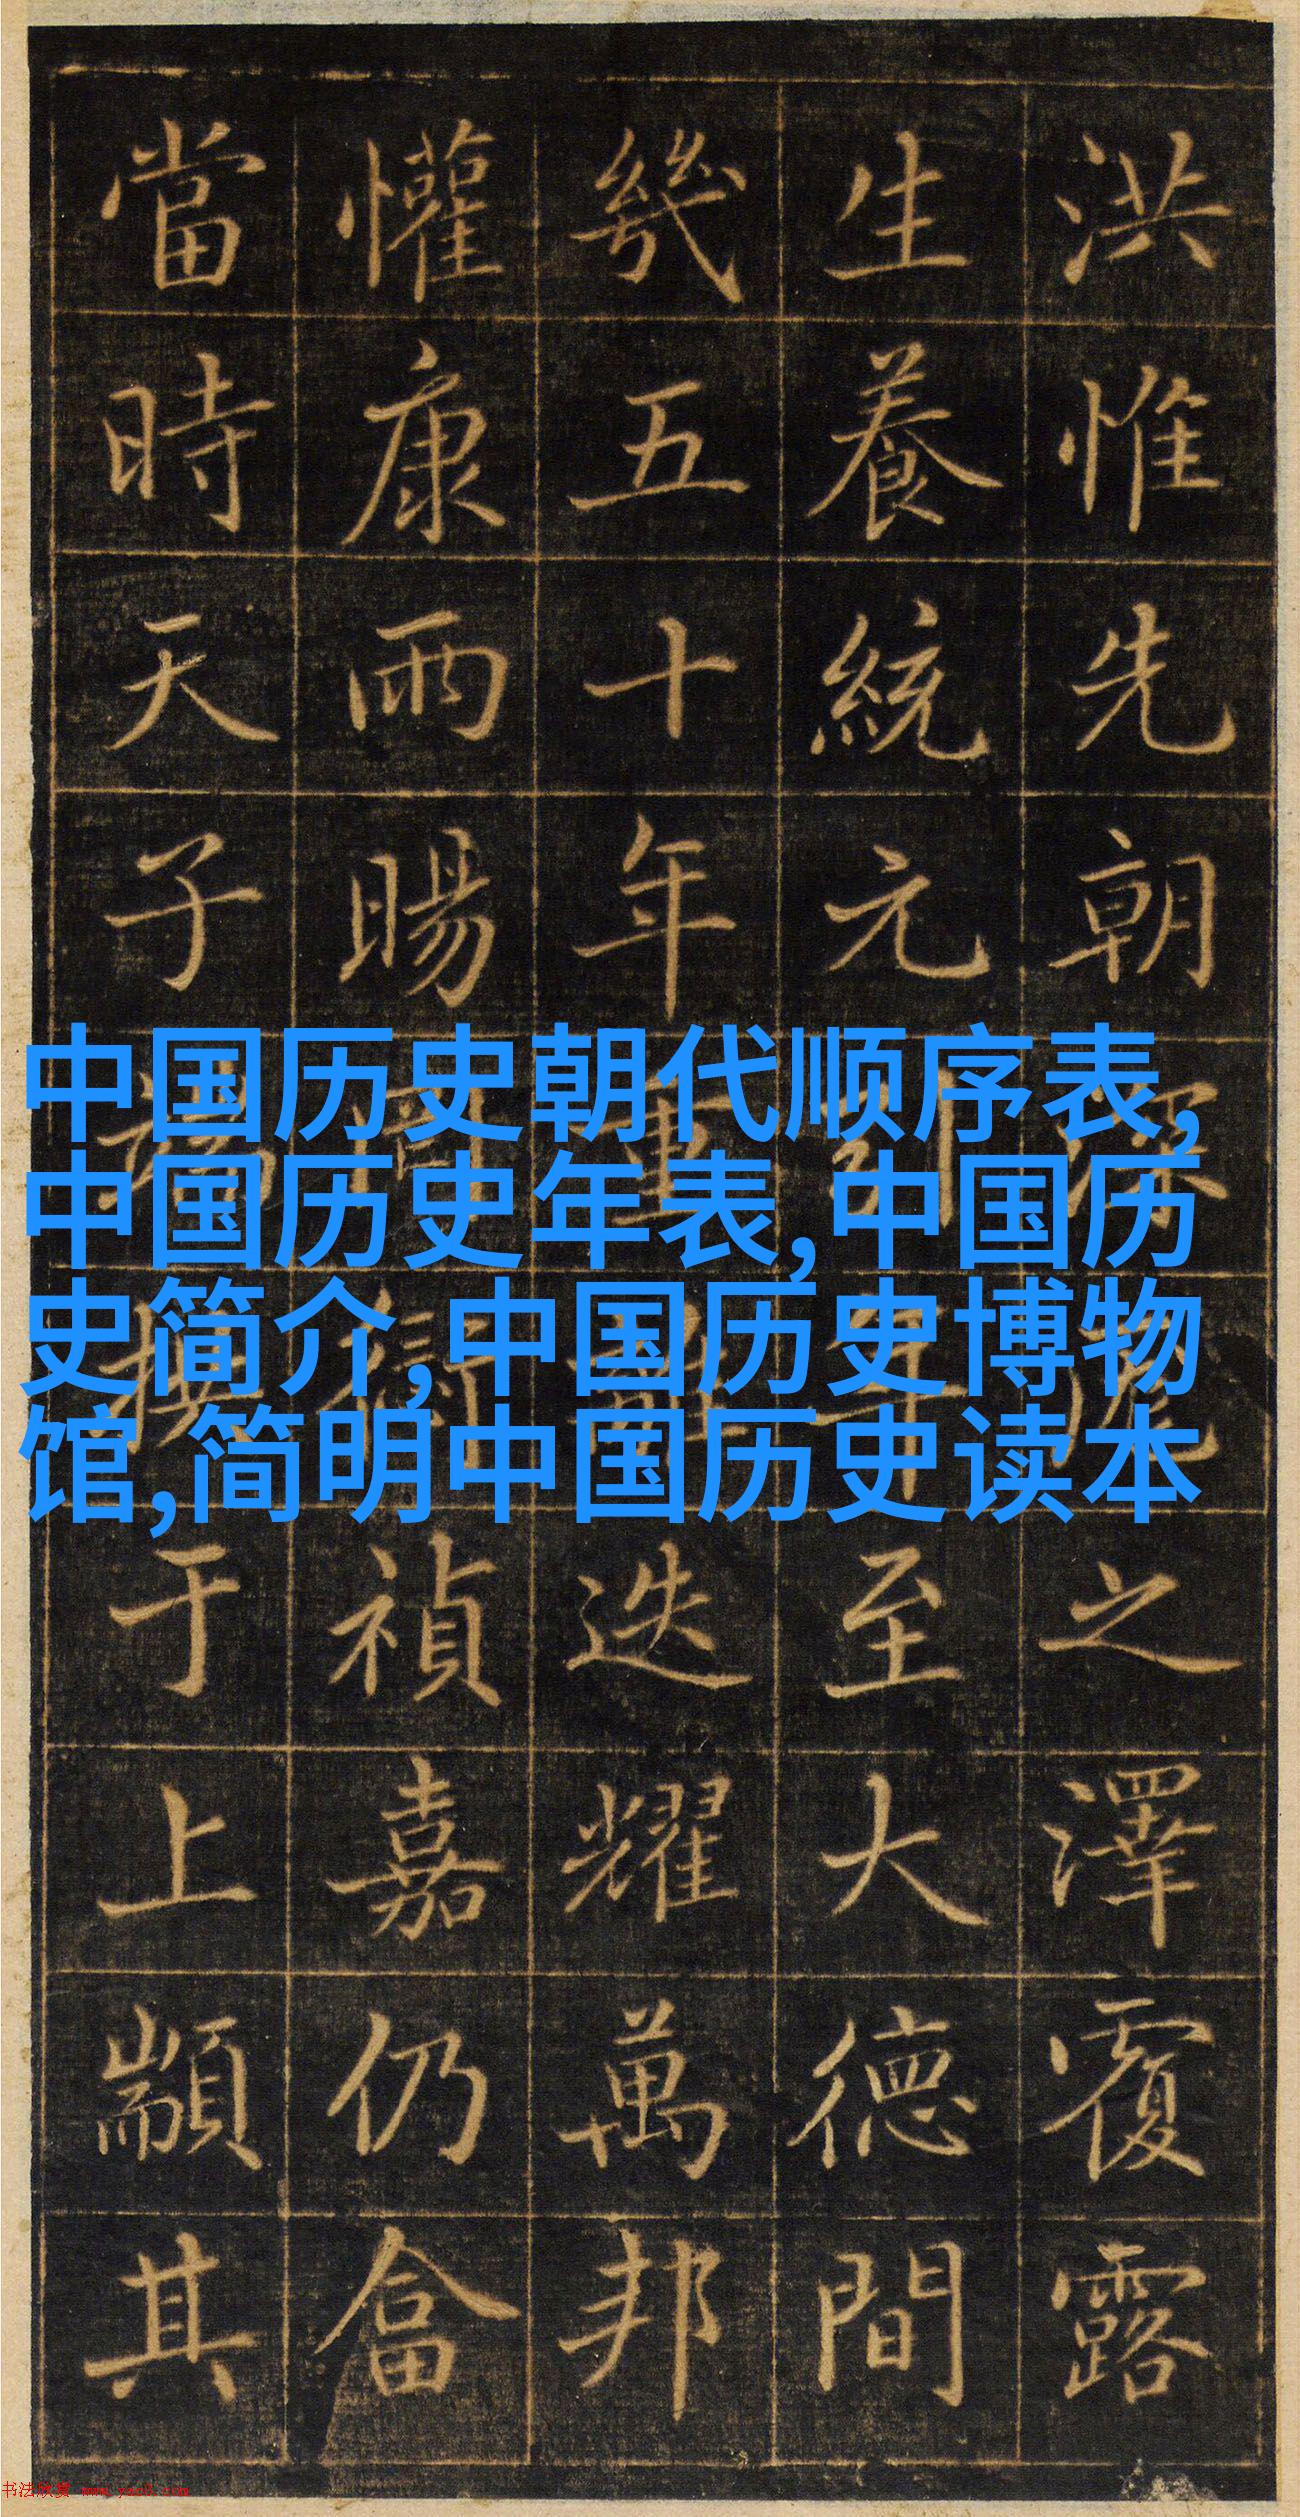 洪惟先朝深之澤覆露
生養統元至大德間
幾五十年重迭耀萬邦
懽康雨暘禎嘉仍畣
當時天子于上顒其
中国历史朝代顺序表,
中国历史年表,中国历
史简介,中国历史博物
馆,简明中国历史读本
书法欣赏